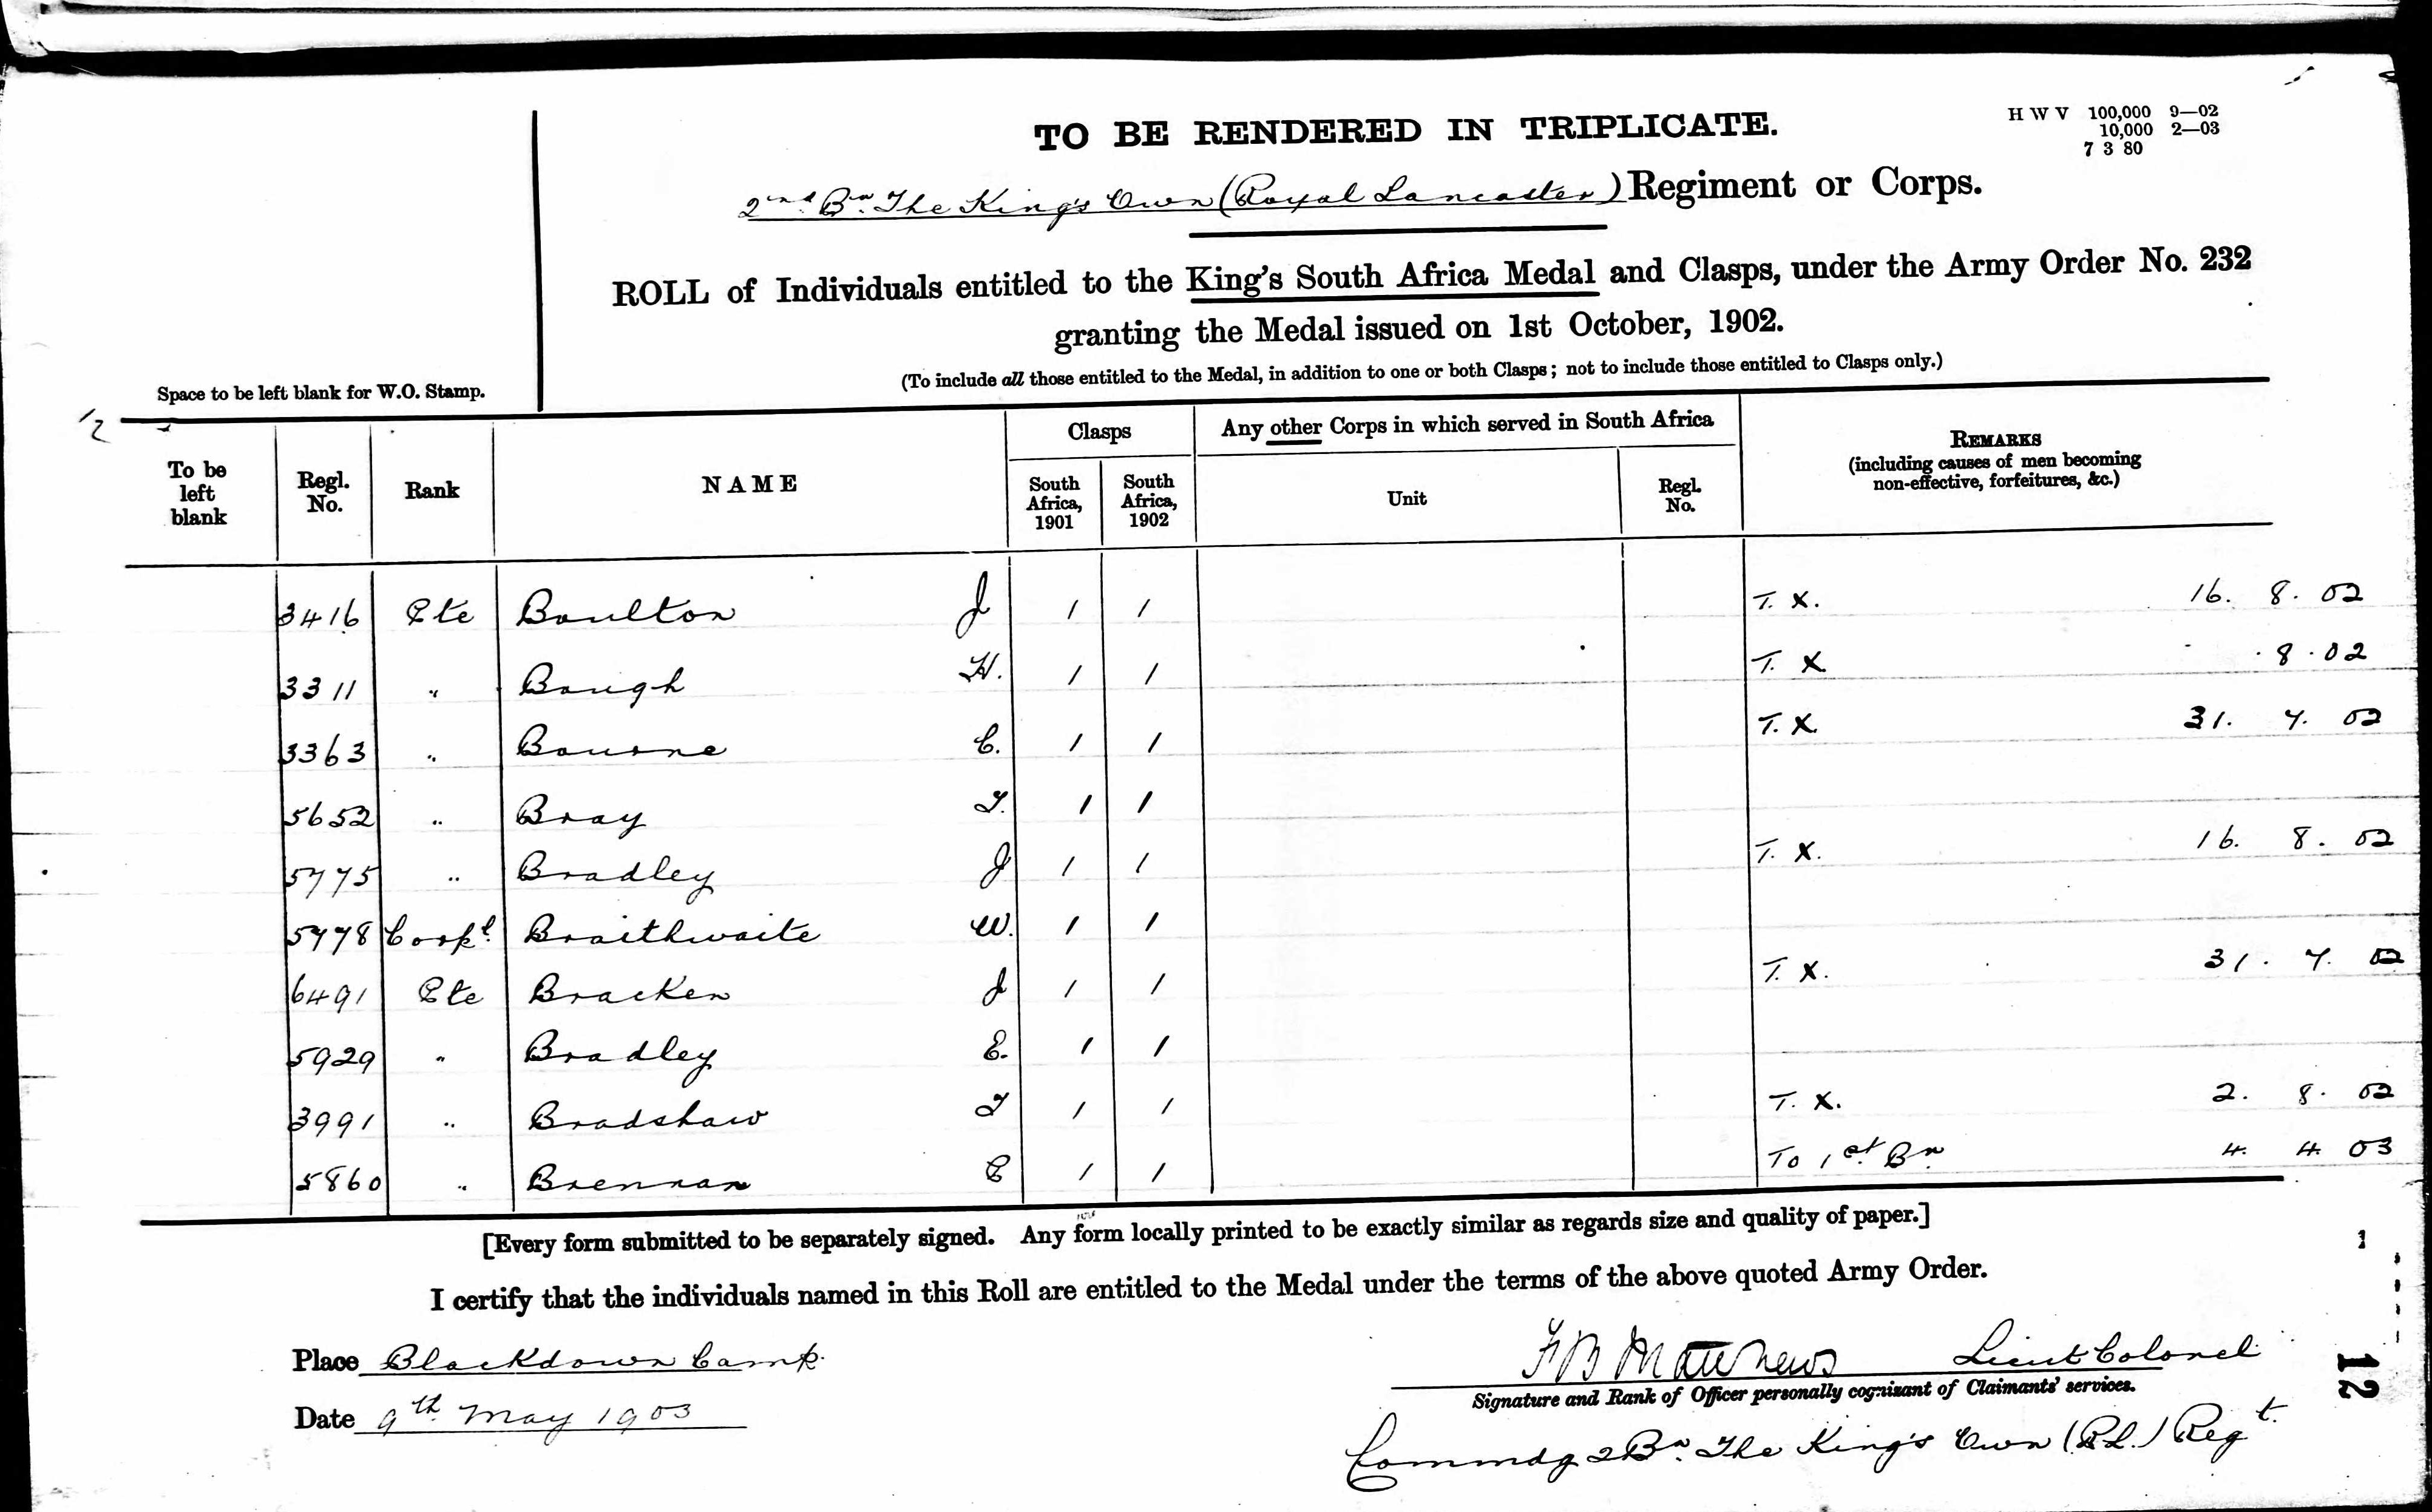 TO BE RENDERED IN TRIPLICATE.
H W V 100,000 9—02
10,000 2—03
7 3 80
2nd Bn. The King's Own (Royal Lancaster) Regiment or Corps.
ROLL of Individuals entitled to the King's South Africa Medal and Clasps, under the Army Order No. 232
granting the Medal issued on 1st October, 1902.
(To include all those entitled to the Medal, in addition to one or both Clasps; not to include those entitled to Clasps only.)
Space to be left blank for W.O. Stamp.
12
To be left blank
Regl. No.
Rank
NAME
Clasps
South Africa, 1901
South Africa, 1902
Any other Corps in which served in South Africa
Unit
Regl. No.
REMARKS
(including causes of men becoming
non-effective, forfeitures, &c.)
3416 Pte Boulton J / / T. X. 16. 8. 02
3311 " Bough H. / / T. X . 8 . 02
3363 " Bourne C. / / T. X. 31. 7. 02
5652 " Bray T. / /
5775 " Bradley J / / T. X. 16. 8. 02
5778 Corpl. Braithwaite W. / /
6491 Pte Bracken J / / T. X. 31. 7. 02
5929 " Bradley E. / /
3991 " Bradshaw T / / T. X. 2. 8. 02
5860 " Brennan C / / To 1st Bn 4. 4. 03
[Every form submitted to be separately signed. Any form locally printed to be exactly similar as regards size and quality of paper.]
I certify that the individuals named in this Roll are entitled to the Medal under the terms of the above quoted Army Order.
Place Blackdown Camp.
Date 9th May 1903
F B Matthews Lieut Colonel
Signature and Rank of Officer personally cognizant of Claimants' services.
Commdg 2 Bn. The King's Own (R.L.) Regt.
12